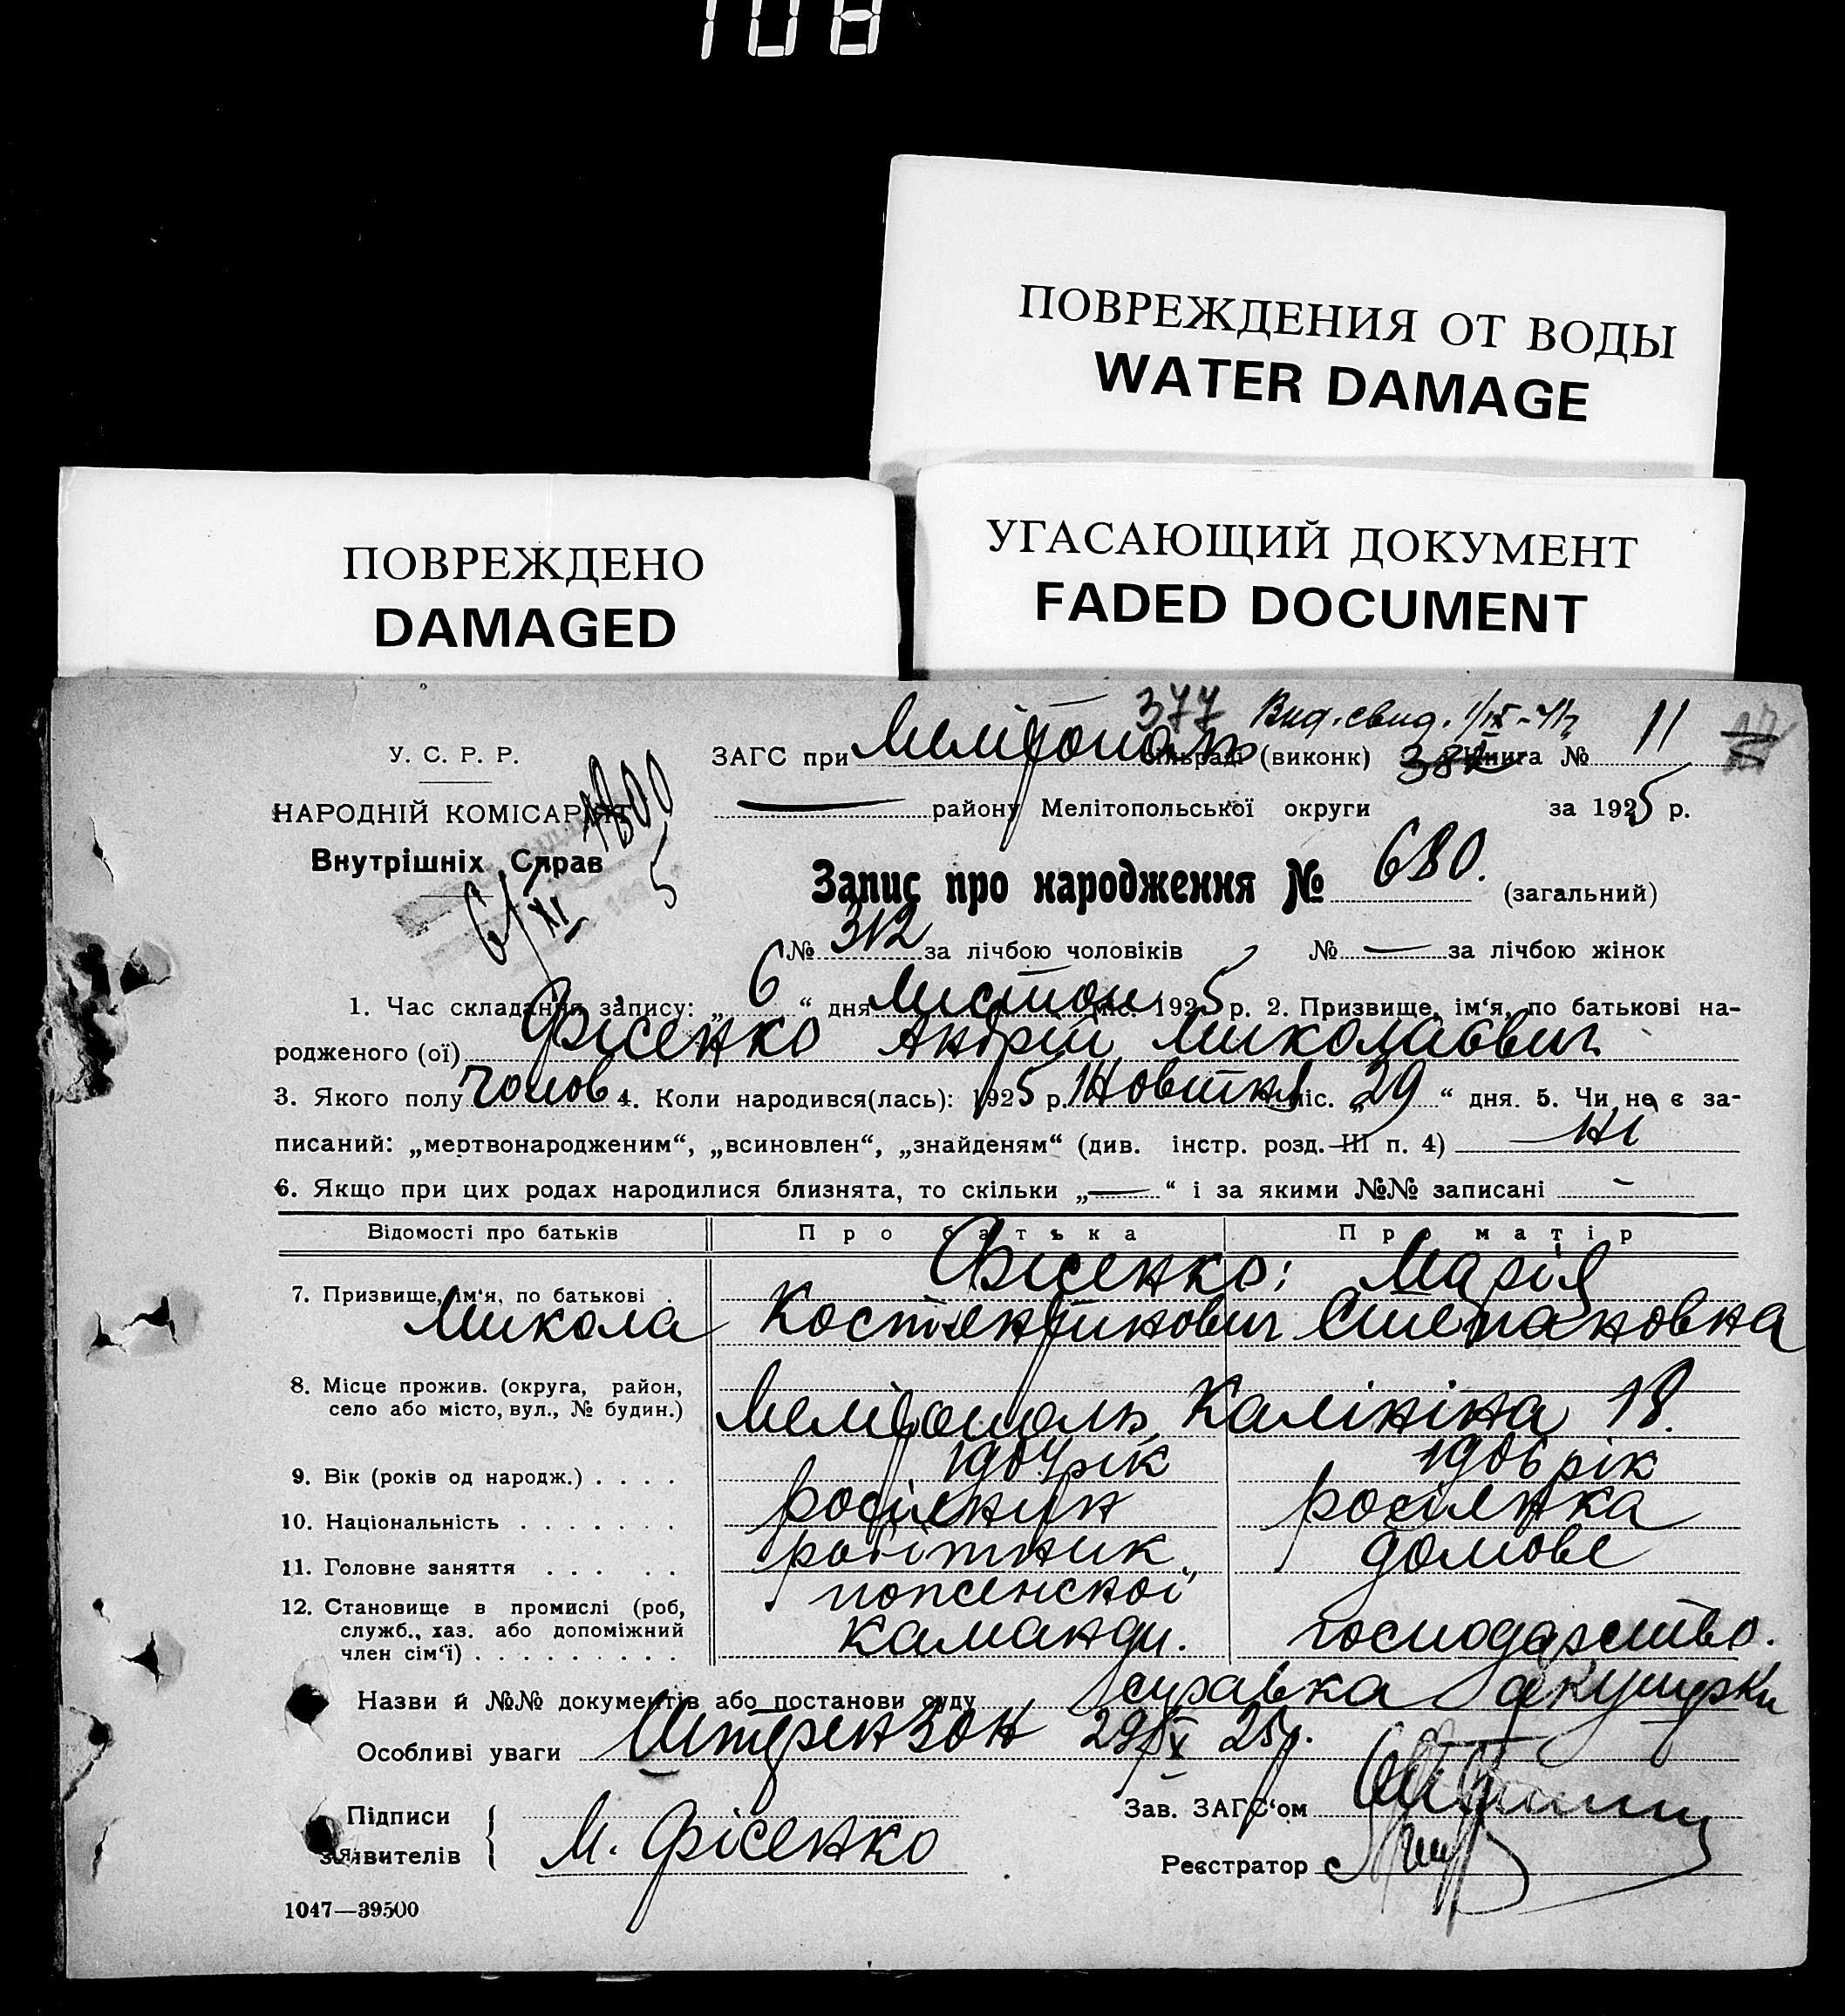 108
ПОВРЕЖДЕНИЯ ОТ ВОДЫ
WATER DAMAGE
ПОВРЕЖДЕНО
DAMAGED
УГАСАЮЩИЙ ДОКУМЕНТ
FADED DOCUMENT
377 Выд. свид. 11
У. С. Р. Р.
ЗАГС при Мелітополь сільраді (виконк) Книга №
НАРОДНІЙ КОМІСАРІЯТ
району Мелітопольської округи за 1925 р.
Внутрішніх Справ
6/XI 5
Запис про народження № 680. (загальний)
№ 312 за лічбою чоловіків № — за лічбою жінок
1. Час складання запису: „6“ дня Листоп міс. 1925 р. 2. Призвище, ім‘я, по батькові на-
родженого (ої) Фісенко Андрій Миколаєвич
3. Якого полу чолов 4. Коли народився(лась): 1925 р. Жовтня міс. „29“ дня. 5. Чи не є за-
писаний: „мертвонародженим“, „всиновлен“, „знайденям“ (див. інстр. розд. III п. 4) ні
6. Якщо при цих родах народилися близнята, то скільки „—“ і за якими №№ записані -
Відомості про батьків Про батька Про матір
Фісенко: Марія
7. Призвище, ім‘я, по батькові
Микола Костянтинович Степановна
8. Місце прожив. (округа, район,
село або місто, вул., № будин.) Мелітополь, Калініна 18.
9. Вік (років од народж.) 1904 рік 1906 рік
10. Національність росіянин росіянка
11. Головне заняття робітник домове
12. Становище в промислі (роб, поженской
служб., хаз. або допоміжний каманди. господарство.
член сім‘ї)
Назви й №№ документів або постанови суду справка акушерки
Особливі уваги Штерензон 29/X 25р.
Підписи
Заявителів М. Фісенко
Зав. ЗАГС‘ом
Реєстратор
1047—39500